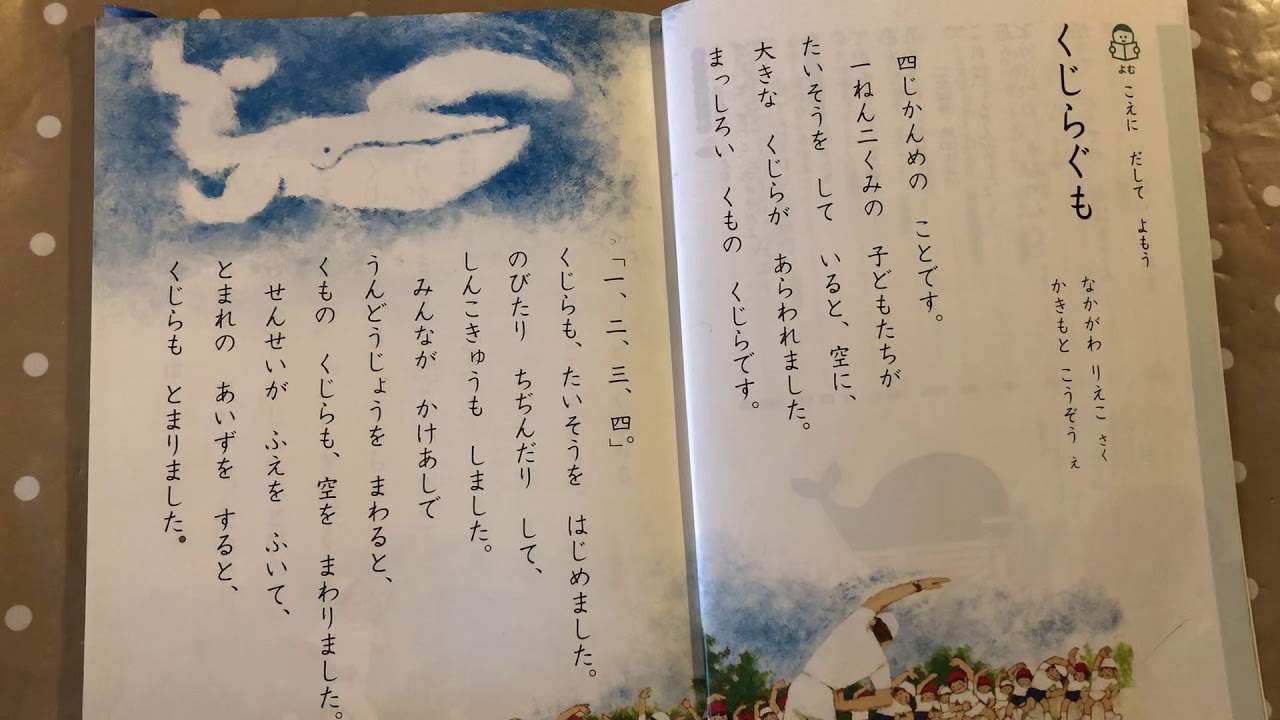 よむ
こえに だして よもう
くじらぐも
なかがわ りえこ さく
かきもと こうぞう え
四じかんめの ことです。
一ねん二くみの 子どもたちが
たいそうを して いると、空に、
大きな くじらが あらわれました。
まっしろい くもの くじらです。
「一、二、三、四。」
くじらも、たいそうを はじめました。
のびたり ちぢんだり して、
しんこきゅうも しました。
みんなが かけあしで
うんどうじょうを まわると、
くもの くじらも、空を まわりました。
せんせいが ふえを ふいて、
とまれの あいずを すると、
くじらも とまりました。